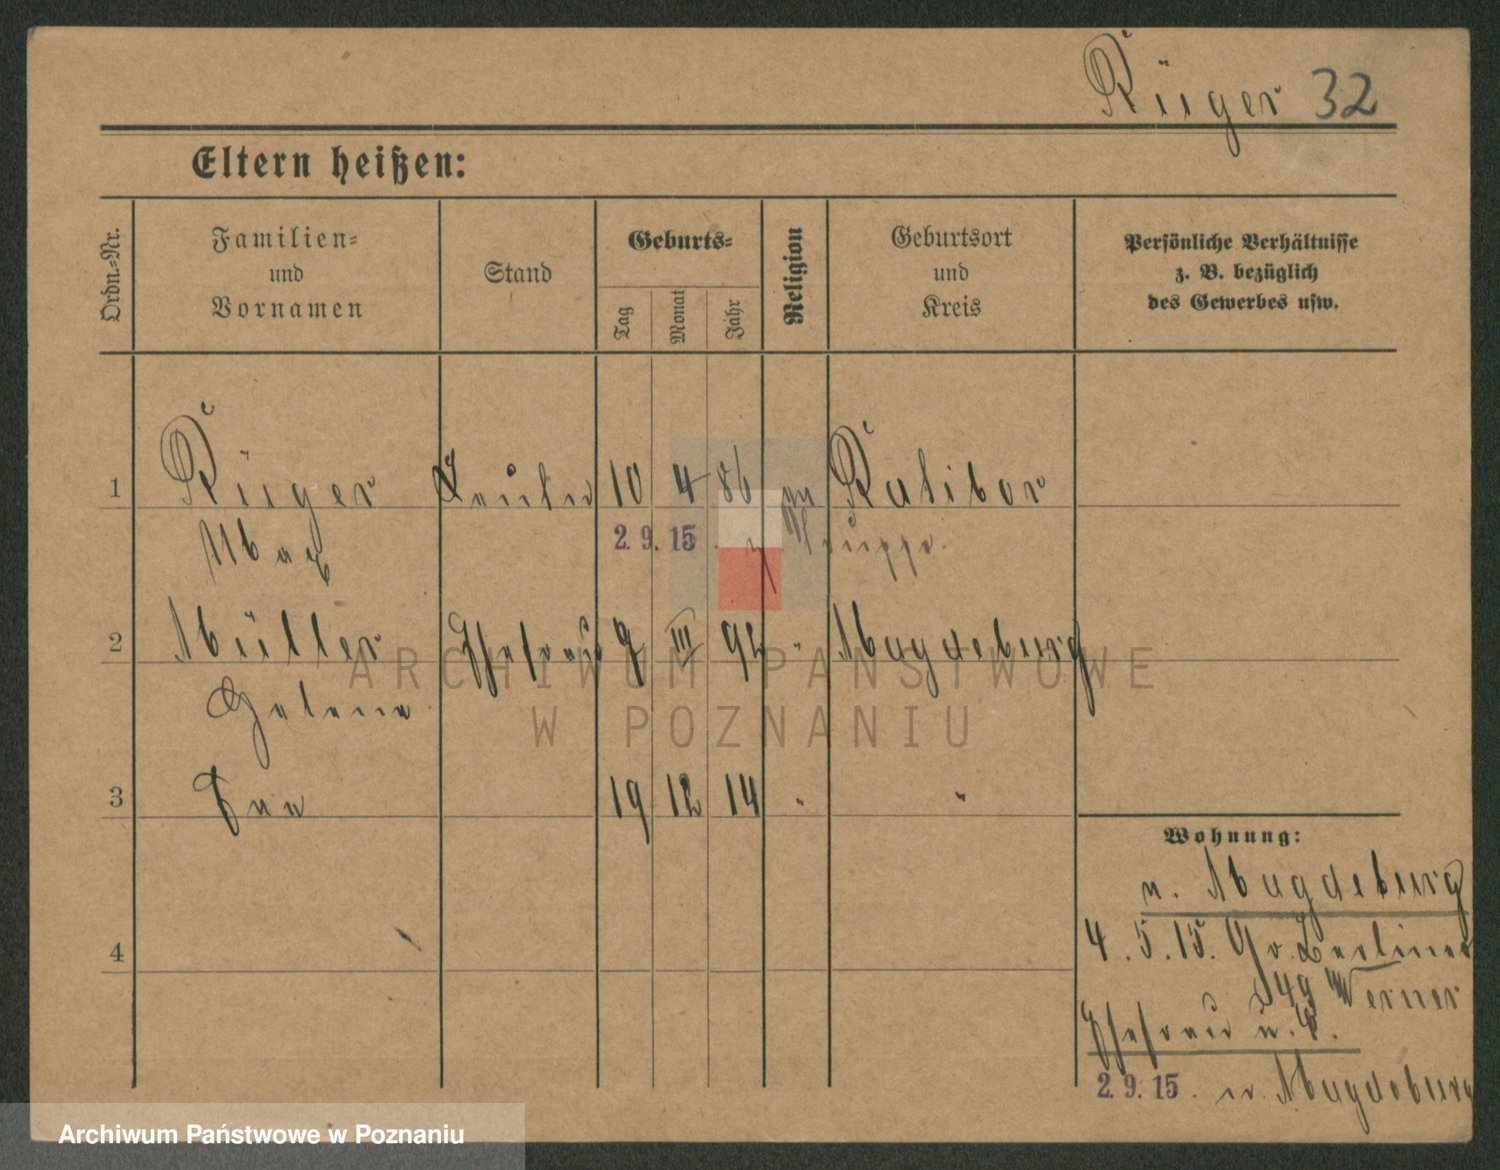 Rüger 32
Eltern heißen:
Ordn.-Nr.
Familien-
und
Vornamen
Stand
Geburts-
Tag
Monat
Jahr
Religion
Geburtsort
und
Kreis
Persönliche Verhältnisse
z. B. bezüglich
des Gewerbes usw.
1 Rüger 10 4 86 Ratibor
Max 2.9.15. Gruppe.
2 Müller Ehefrau 7 III 92 " Magdeburg
Helene
3 19 12 14 " "
Wohnung:
n. Magdeburg
4.5.15. Gr. Berliner
49 Werner
Ehefrau u. K.
4
2.9.15. n. Magdeburg
ARCHIWUM PAŃSTWOWE
W POZNANIU
Archiwum Państwowe w Poznaniu